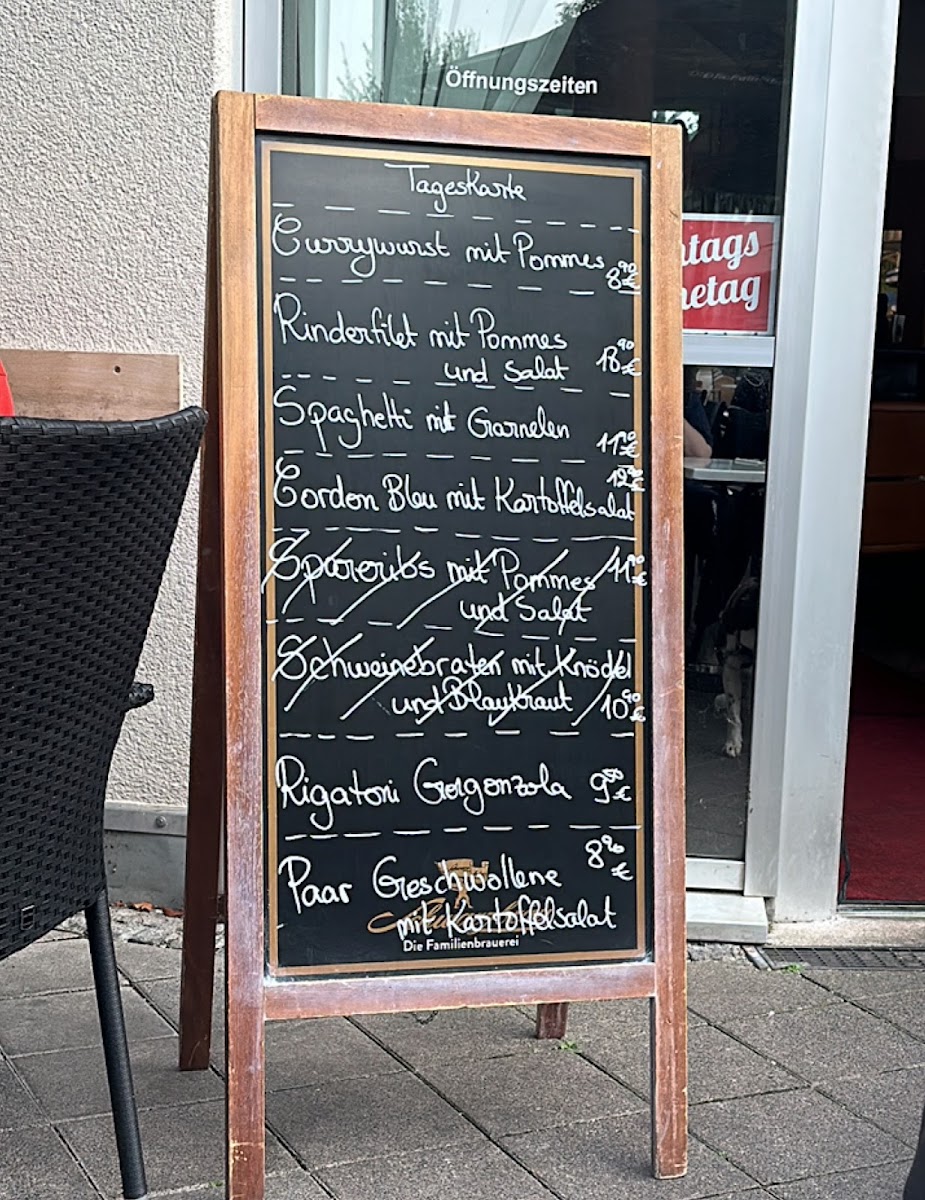 Öffnungszeiten
Tageskarte
Currywurst mit Pommes
8,90€
Rinderfilet mit Pommes
und Salat 18,90€
Spaghetti mit Garnelen
11,90€
12,90€
Cordon Bleu mit Kartoffelsalat
Spareribs mit Pommes 11,90€
und Salat
Schweinebraten mit Knödel
und Blaukraut 10,90€
Rigatoni Gorgonzola 9,50€
8,90€
Paar Geschwollene
mit Kartoffelsalat
Die Familienbrauerei
ntags
hetag